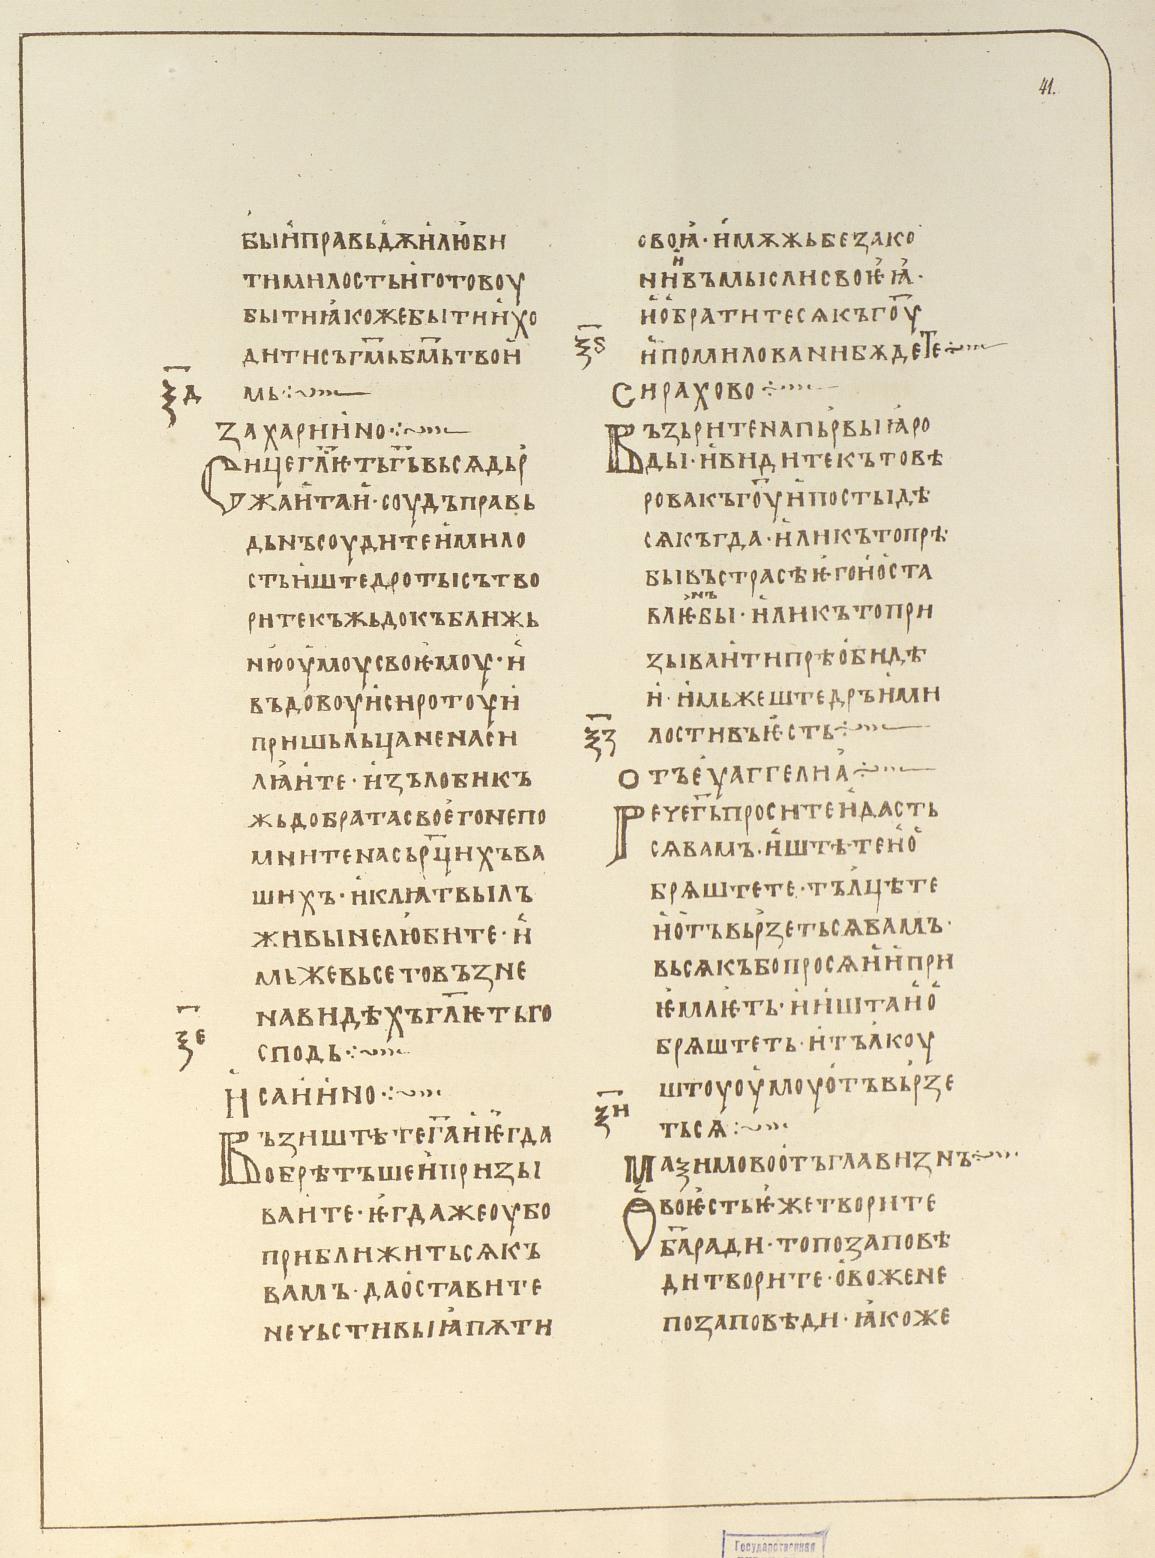 41.
бꙑи҆правьдѫи҆люби
тимилостьи҆готовоу
бꙑтиꙗ҆кожебꙑтиих҆о
дитисъг҃мьб҃мьтвои
ѯ҃д
мь
захариино
Сицегл҃ѥтьг҃ьвьсѧдьр
жаи҆таи҆·соудъправь
дьнъсоудитеи҆мило
стьи҆штедротꙑсътво
ритекъжьдокъближь
нюоу҆моусвоѥ҆моу·и҆
въдовоуи҆сиротоуи҆
пришьльцаненаси
лꙗи҆те·и҆зълобикъ
жьдобратасвоѥгонепо
мнитенасьрц҃ихъва
шихъ·и҆клѧтвꙑлъ
живꙑнелюбите·и҆
мьжевьсетовъзне
навидѣхъгл҃ѥтьго
ѯ҃е
сподь
И҆саиино
Възиштѣтег҃аи҆ѥ҆гда
обрѣтъшеи҆призꙑ
ваите·ѥ҆гдажеоубо
приближитьсѧкъ
вамъ·дао҆ставите
нечьстивꙑꙗ҆пѫти
своꙗ҆·и҆мѫжьбезако
нии҆въмꙑслисвоѥꙗ҆·
и҆о҆братитесѧкъго҃у
ѯ҃ѕ
и҆помилованибѫдете
Сирахово
Възьритенапьрвꙑꙗ҆ро
дꙑ·и҆видитекътовѣ
ровакъго҃уи҆постꙑдѣ
сѧкъгда·и҆ликътопрѣ
бꙑвъстрасѣѥ҆гои҆о҆ста
влѥнъбꙑ·и҆ликътопри
зꙑваи҆типрѣо҆бидѣ
и҆·и҆мьжештедръи҆ми
ѯ҃з
лостивъѥ҆сть
Отъеу҆аггелиꙗ
Речег҃ьпроситеи҆дасть
сѧвамъ·и҆штѣтеи҆о҆
брѧштете·тълцѣте
и҆о҆тъвьрзетьсѧвамъ·
вьсѧкъбопросѧи҆и҆при
ѥ҆млѥть·и҆и҆штаи҆о҆
брѧштеть·и҆тълкоу
штоуоу҆моуо҆тъвьрзе
ѯ҃и
тьсѧ
Маѯимовоо҆тъглавизнъ
Овоѥ҆стьѥ҆жетворите
б҃аради·топозаповѣ
дитворите·о҆вожене
позаповѣди·ꙗ҆коже
Государственная